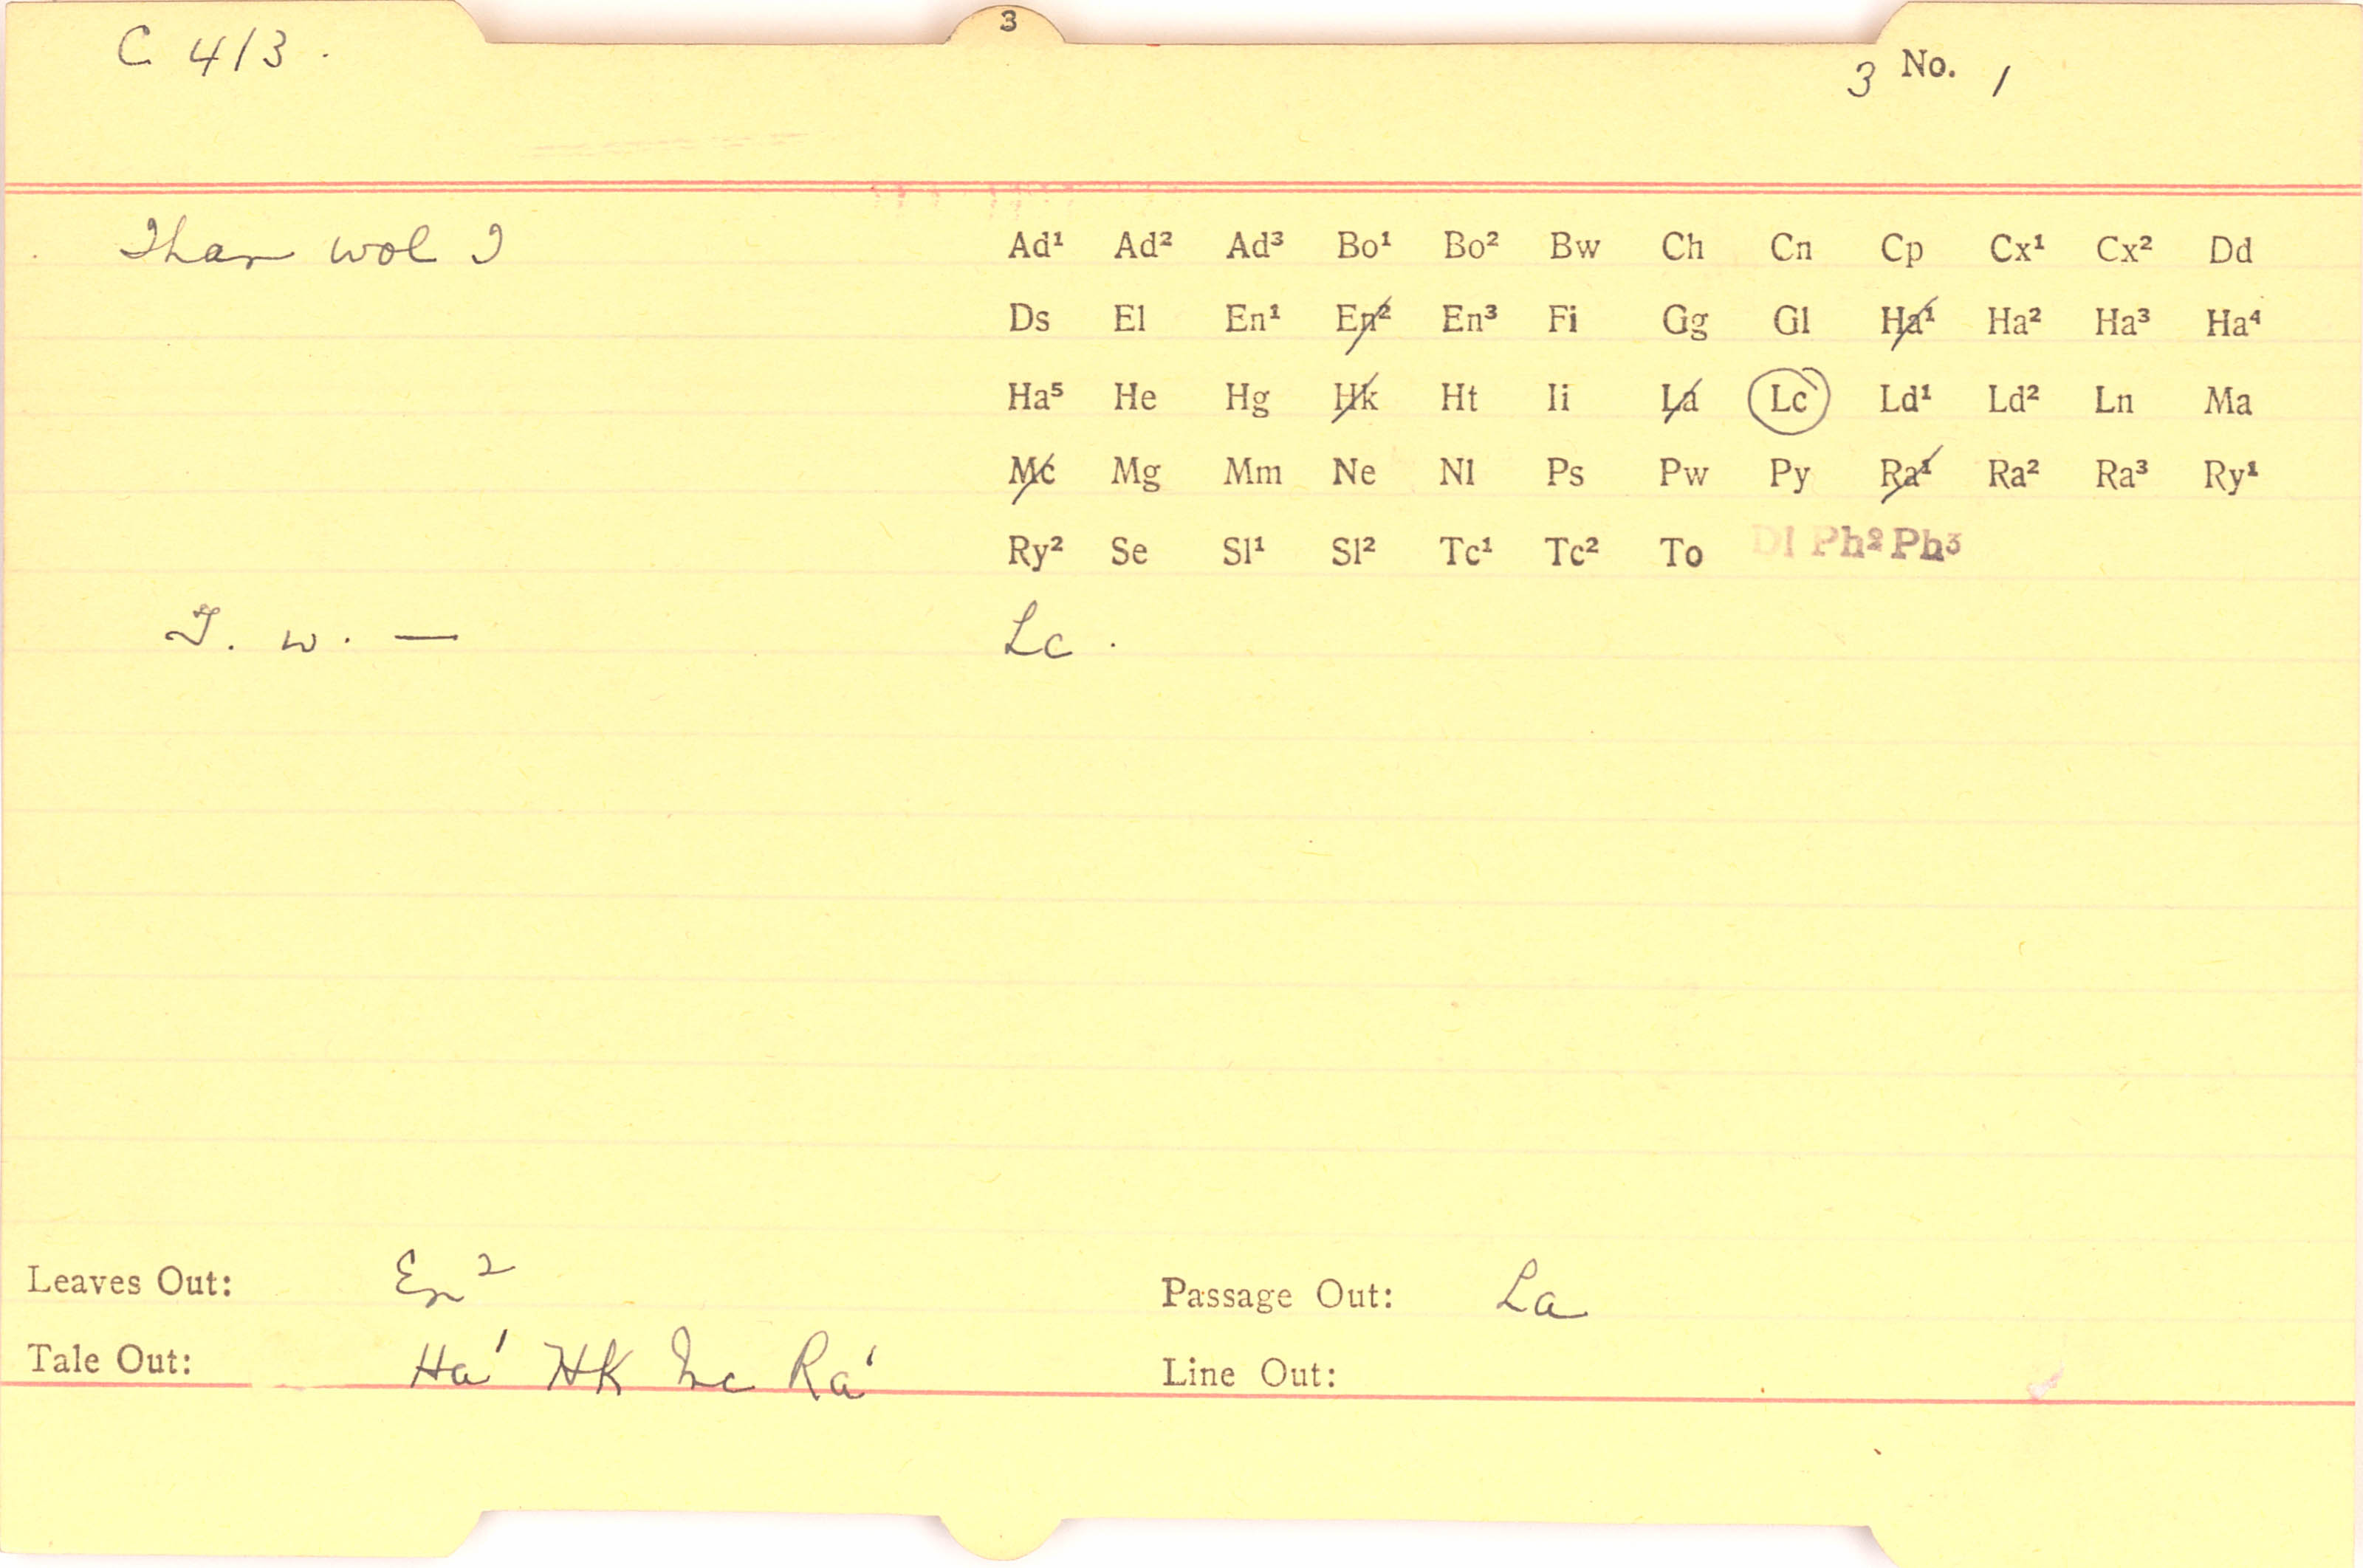 3
C 413 .
3 No. 1
Than wol I
Ad¹ Ad² Ad³ Bo¹ Bo² Bw Ch Cn Cp Cx¹ Cx² Dd
Ds El En¹ En² En³ Fi Gg Gl Ha¹ Ha² Ha³ Ha⁴
Ha⁵ He Hg Hk Ht Ii La Lc Ld¹ Ld² Ln Ma
Mc Mg Mm Ne Nl Ps Pw Py Ra¹ Ra² Ra³ Ry¹
Ry² Se Sl¹ Sl² Tc¹ Tc² To Dl Ph² Ph³
T. w. — Lc .
Leaves Out: En²
Passage Out: La
Tale Out: Ha¹ Hk Mc Ra¹
Line Out: